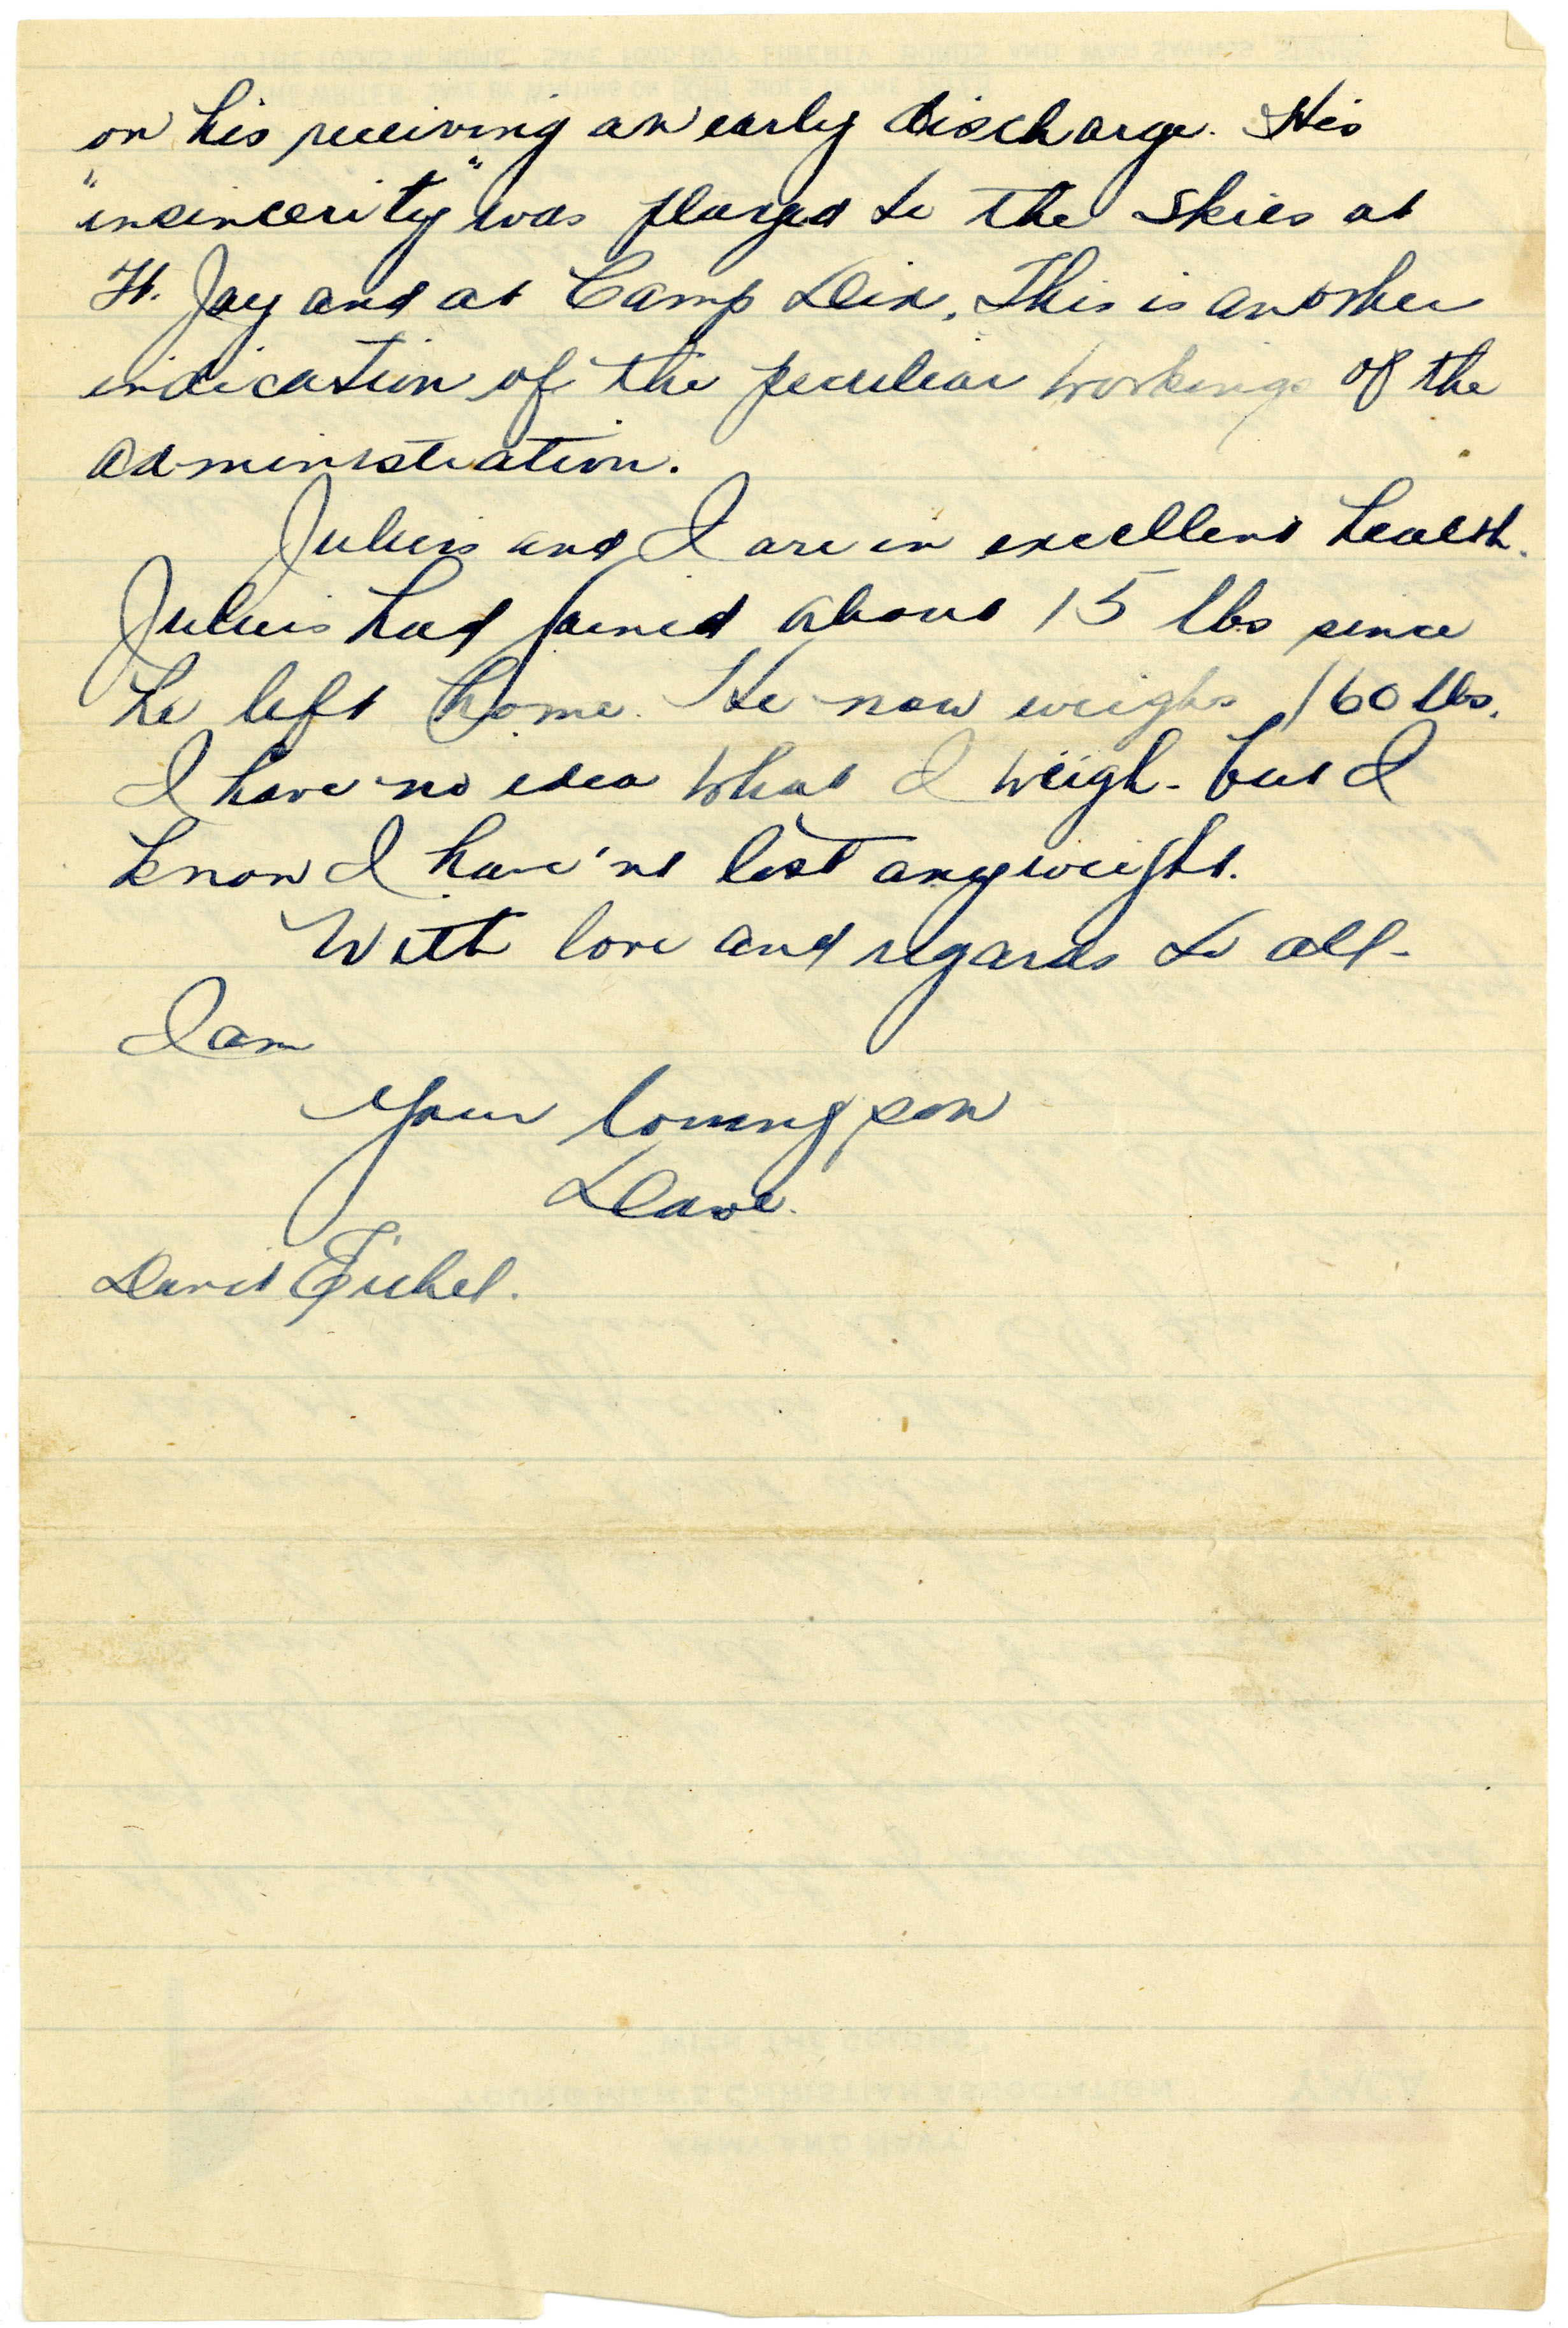 on his receiving an early discharge. His
"insincerity" was played to the skies at
Ft. Jay and at Camp Dix. This is another
indication of the peculiar workings of the
administration.
Julius and I are in excellent health.
Julius had gained about 15 lbs since
he left home. He now weighs 160 lbs.
I have no idea what I weigh - but I
know I have'nt lost any weight.
With love and regards to all -
I am
Your loving son
Dave.
David Eichel.
YOUNG MEN'S CHRISTIAN ASSOCIATION
ARMY AND NAVY
YMCA